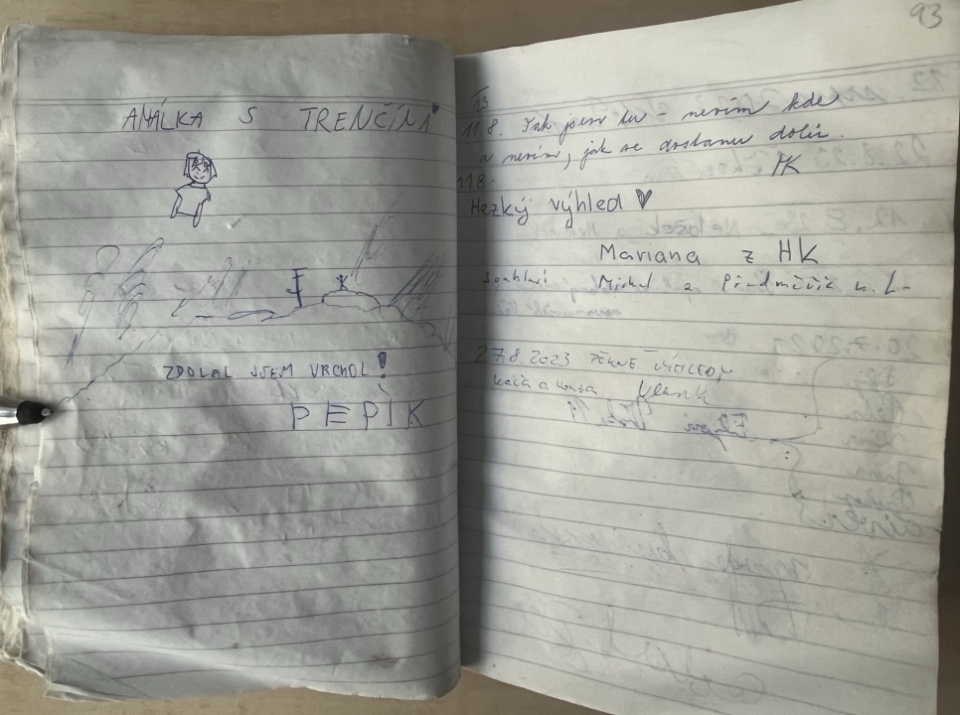 AMÁLKA S TRENČÍNA
ZDOLAL JSEM VRCHOL!
PEPÍK
93
11.8. Tak jsem tu - nevím kde
a nevím, jak se dostanu dolů.
MK
11.8.
Hezký výhled ♥
Mariana z HK
souhlasí Michal z Předměřic n. L.
27.8.2023 PĚKNÉ VÝHLEDY
Káča a Honza